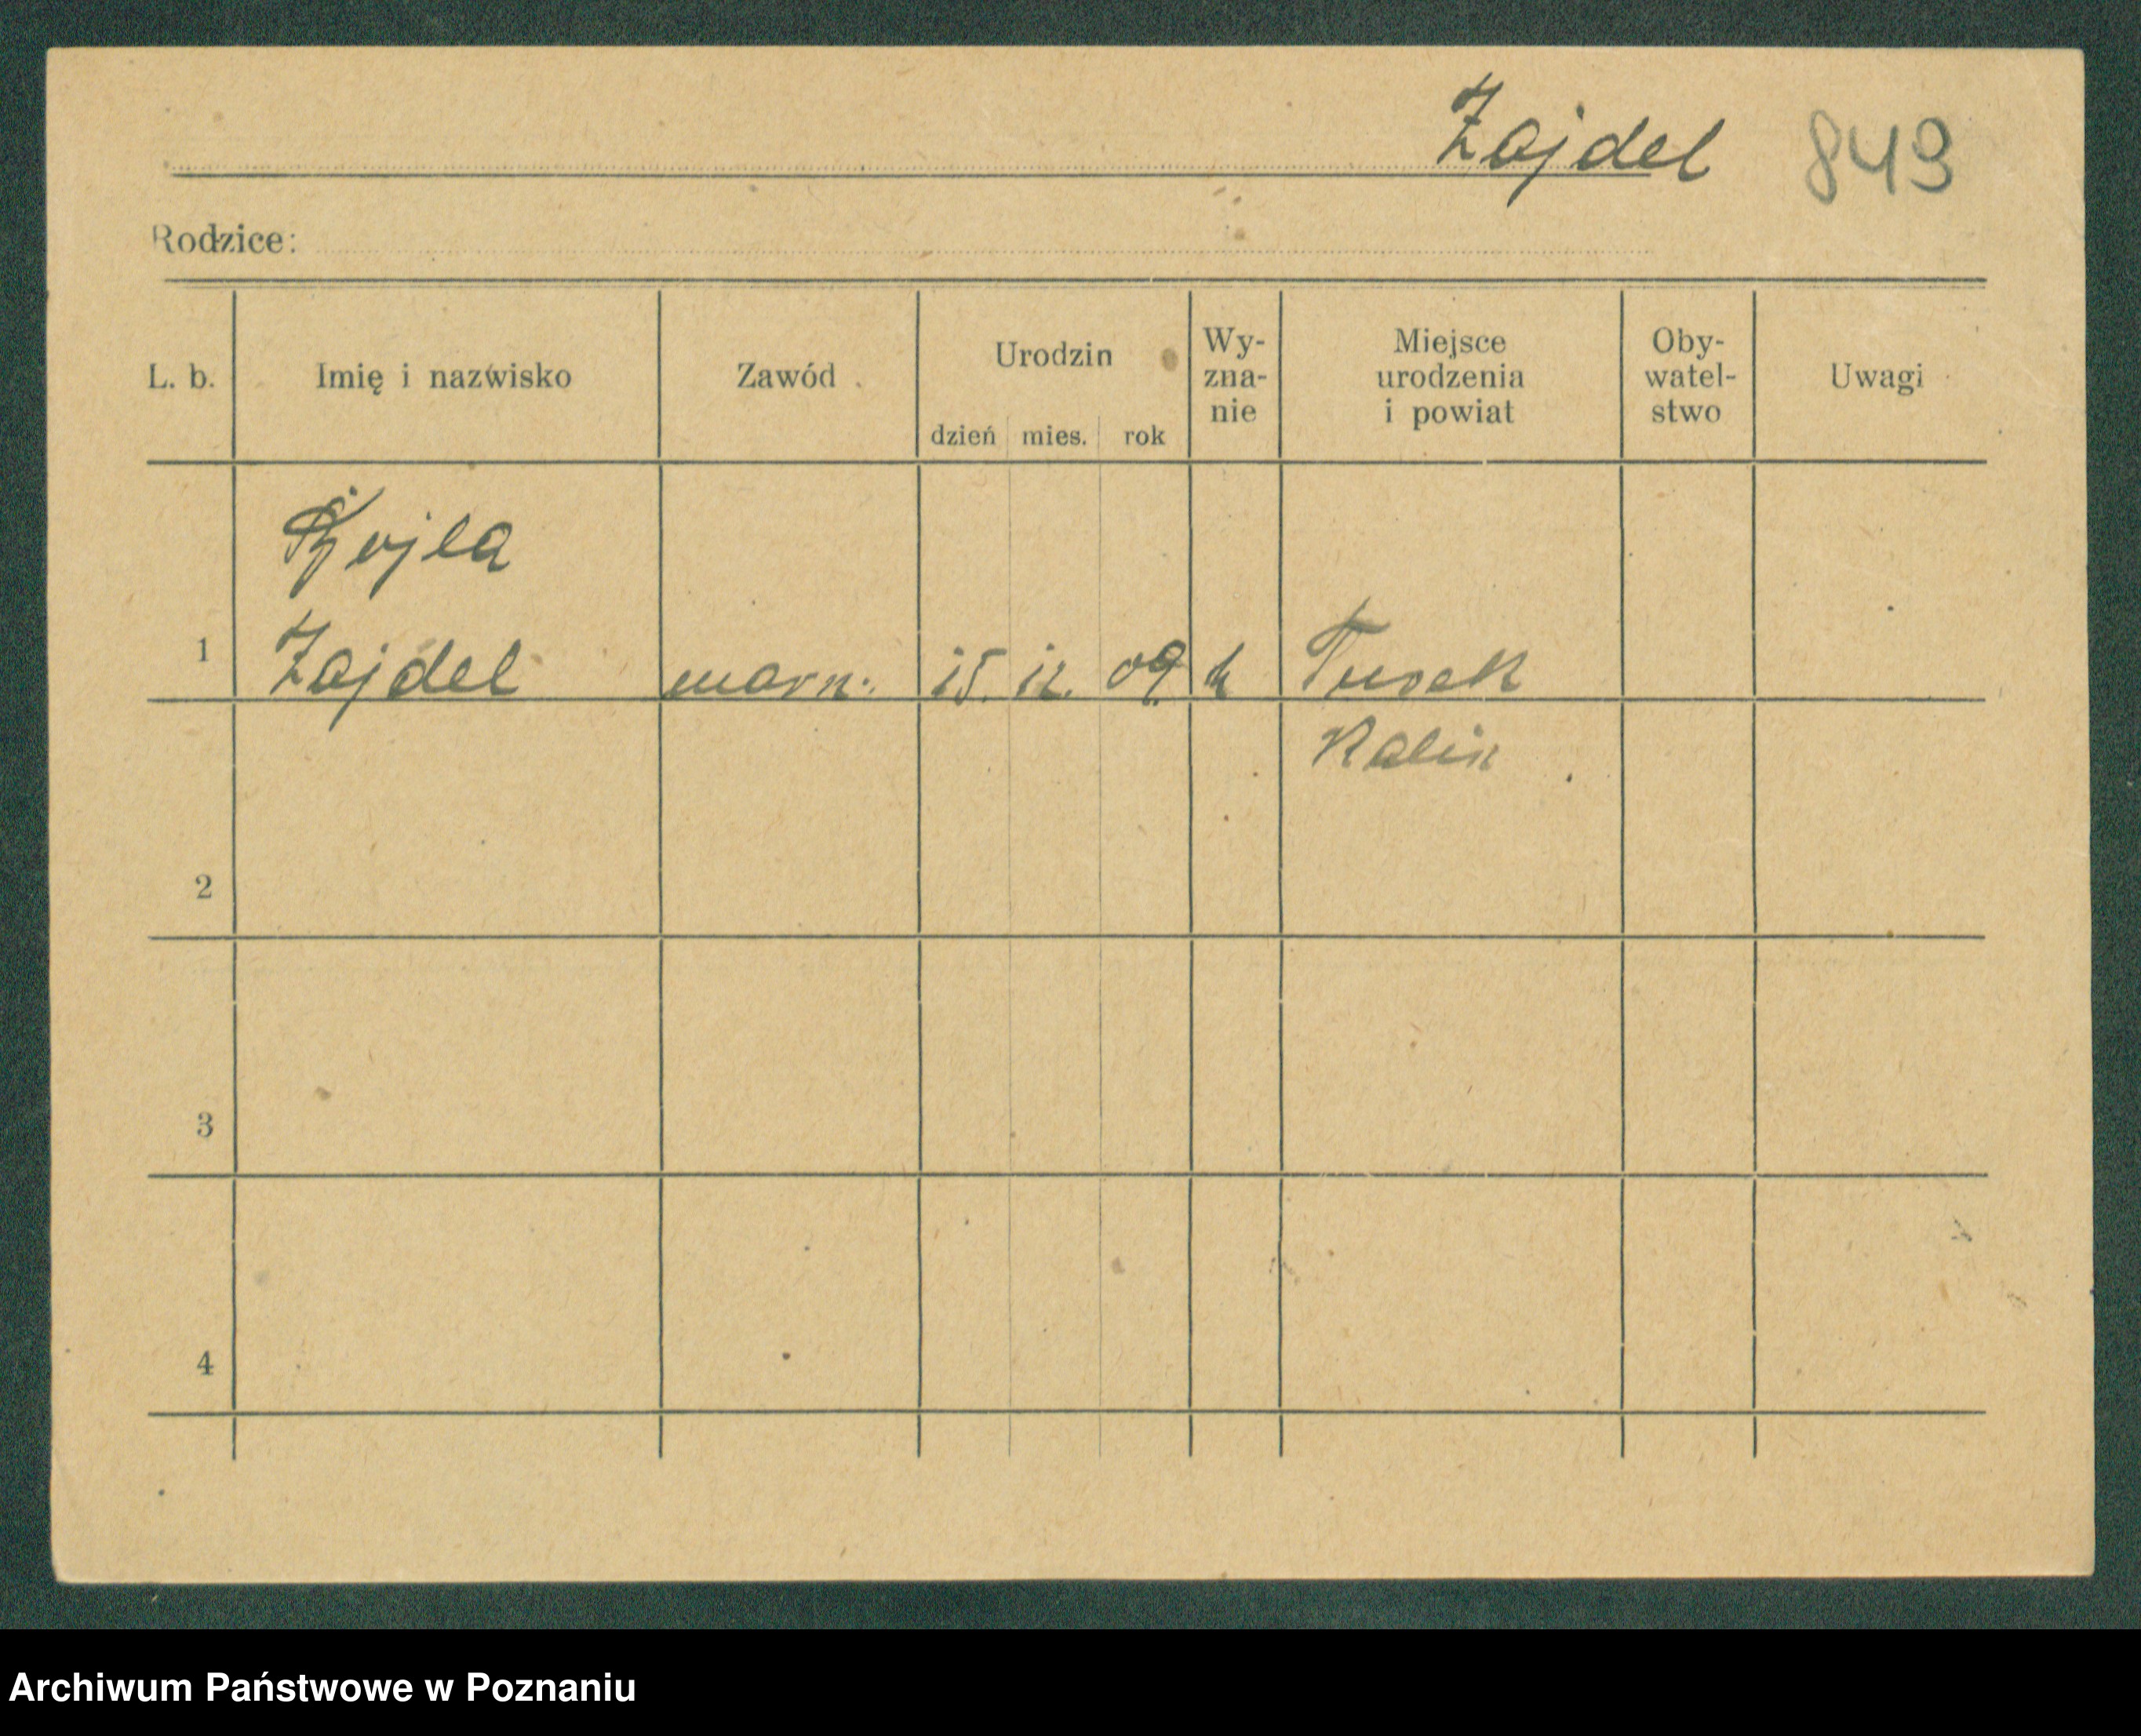 Zajdel 849
Rodzice:
L. b. Imię i nazwisko Zawód Urodzin dzień mies. rok Wy-zna-nie Miejsce urodzenia i powiat Oby-watel-stwo Uwagi
Zajdel 15. 12. 09.
1
Turek
2
3
4
Archiwum Państwowe w Poznaniu